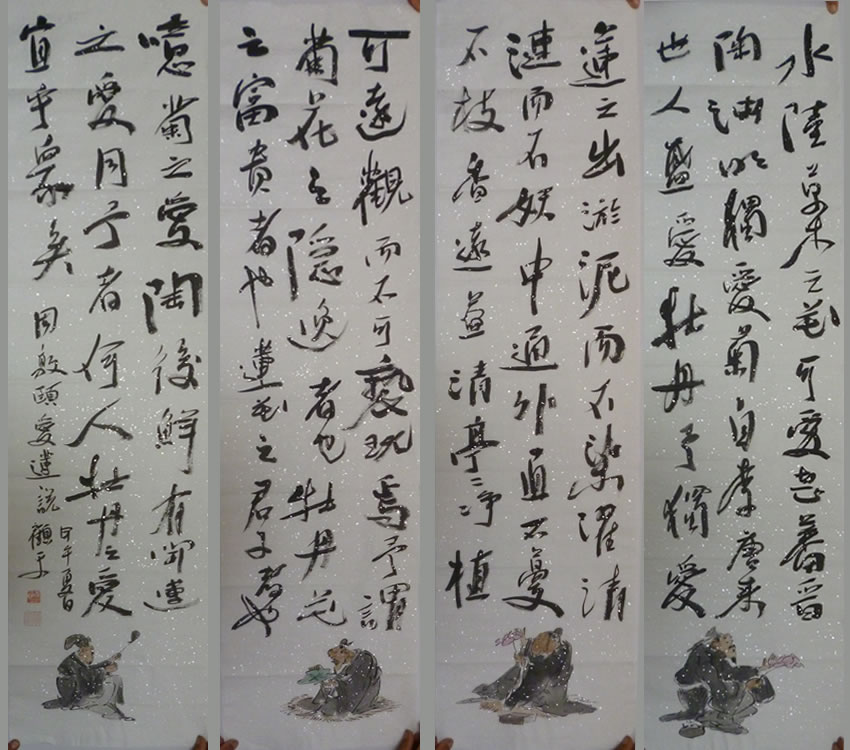 水陸草木之花可愛蕃晉
陶渊明獨愛菊自李唐来
世人盛愛牡丹予獨愛
蓮之出淤泥而不染濯清
漣而不妖中通外直不蔓
不枝香遠益清亭々净植
可遠觀而不可褻玩焉予謂
菊花之隱逸者也牡丹花
之富貴者也蓮花之君子者也
噫菊之愛陶後鮮有聞蓮
之愛同予者何人牡丹之愛
宜乎衆矣
周敦頤愛蓮説
甲午夏日